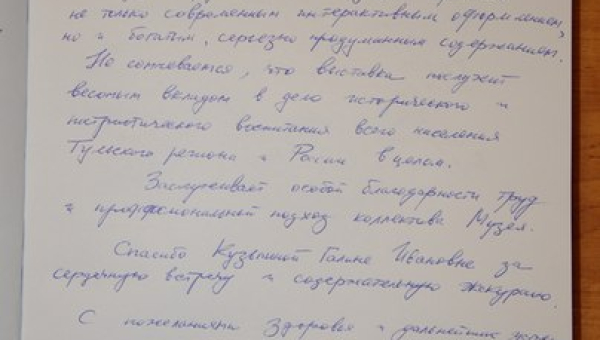 не только современным интерактивным оформлением,
но и богатым, серьезно продуманным содержанием.
Не сомневаемся, что выставка послужит
весомым вкладом в дело исторического и
патриотического воспитания всего населения
Тульского региона и России в целом.
Заслуживает особой благодарности труд
и профессиональный подход коллектива Музея.
Спасибо Кузьминой Галине Ивановне за
сердечную встречу и содержательную экскурсию.
С пожеланиями Здоровья и дальнейших